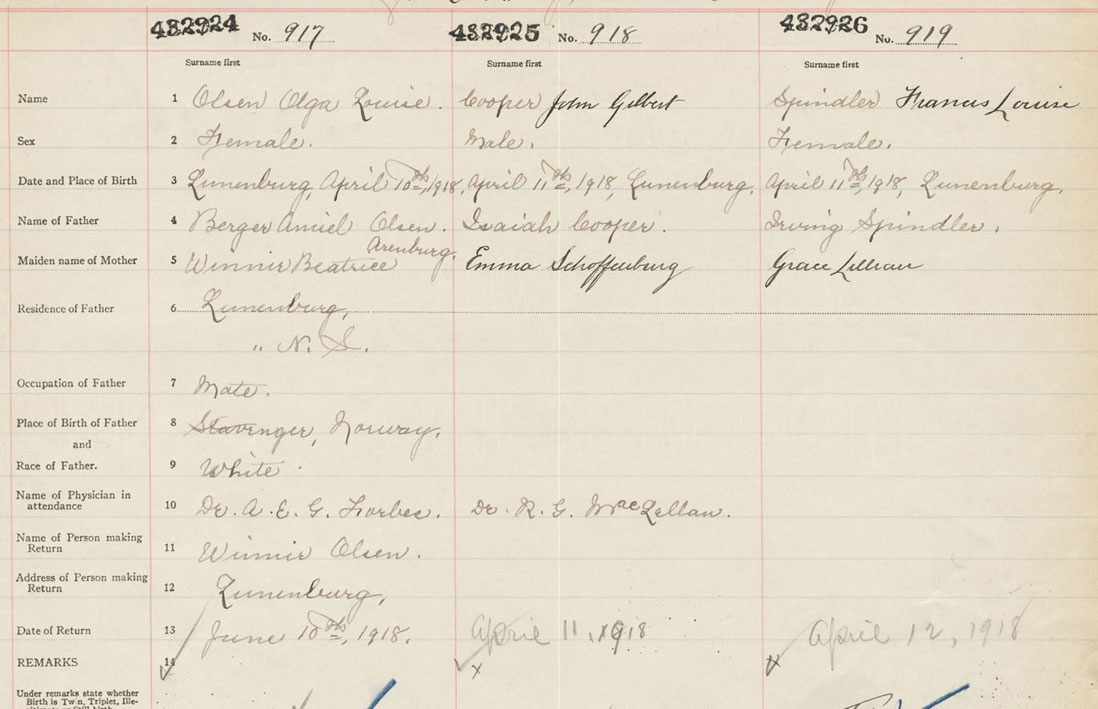 432924 No. 917 432925 No. 918 432926 No. 919
Surname first Surname first Surname first
Name 1 Olsen Olga Louise. Cooper John Gilbert Spindler Francis Louise
Sex 2 Female. Male. Female.
Date and Place of Birth 3 Lunenburg, April 10th, 1918, April 11th, 1918, Lunenburg. April 11th, 1918, Lunenburg.
Name of Father 4 Berger Amiel Olsen. Isaiah Cooper. Irving Spindler.
Arenburg.
Maiden name of Mother 5 Winnie Beatrice Emma Schoffenburg Grace Lillian
Residence of Father 6 Lunenburg,
" N. S.
Occupation of Father 7 Mate.
Place of Birth of Father 8 Stavenger, Norway.
and
Race of Father. 9 White.
Name of Physician in
attendance 10 Dr. A. E. G. Forbes. Dr. R. G. MacLellan.
Name of Person making
Return 11 Winnie Olsen.
Address of Person making
Return 12 Lunenburg,
Date of Return 13 June 10th, 1918. April 11, 1918 April 12, 1918
REMARKS 14 x x
Under remarks state whether
Birth is Twin, Triplet, Ille-